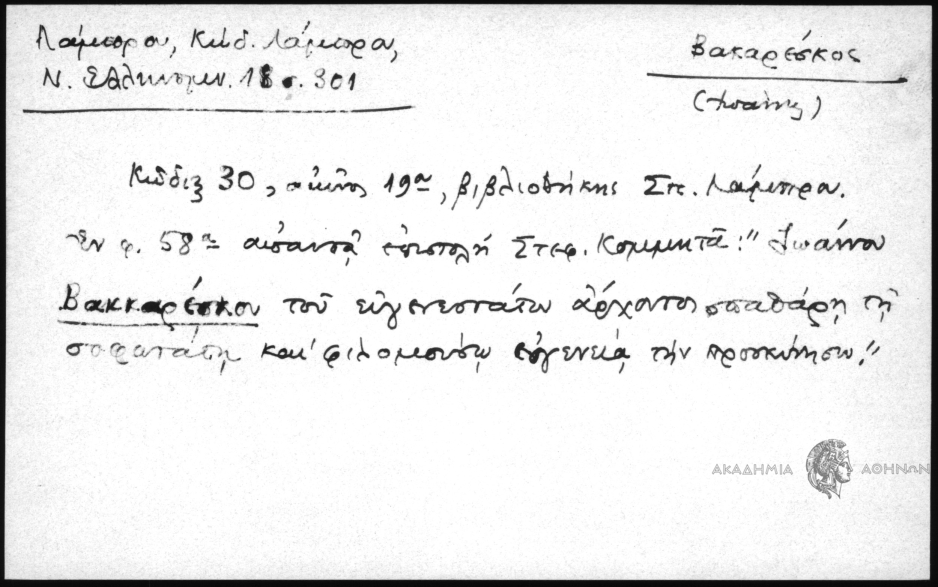 Λάμπρου, Κώδ. Λάμπρα,
Ν. Ἑλληνομν. 18 σ. 301
Βακαρέσκος
(Ἰωάννης)
Κῶδιξ 30, αἰῶνος 19ου, βιβλιοθήκης Σπ. Λάμπρου.
Ἐν φ. 58α ἀπαντᾷ ἐπιστολή Στεφ. Κομμητᾶ: "Ἰωάννου
Βακκαρέσκου τοῦ εὐγενεστάτου ἄρχοντος σπαθάρη τῇ
σοφωτάτῃ καί φιλομούσῳ εὐγενείᾳ τήν προσκύνησιν."
ΑΚΑΔΗΜΙΑ ΑΘΗΝΩΝ